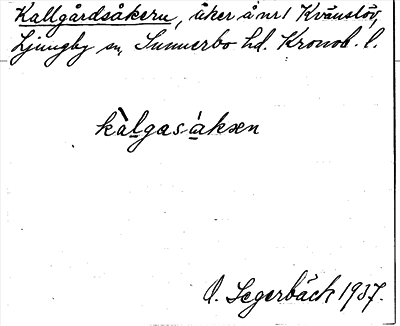 Kallgårdsåkern, åker å nr 1 Kvänslöv,
Ljungby sn, Sunnerbo hd. Kronob. l.
kàlgasàkæn
O. Segerbäck 1937.